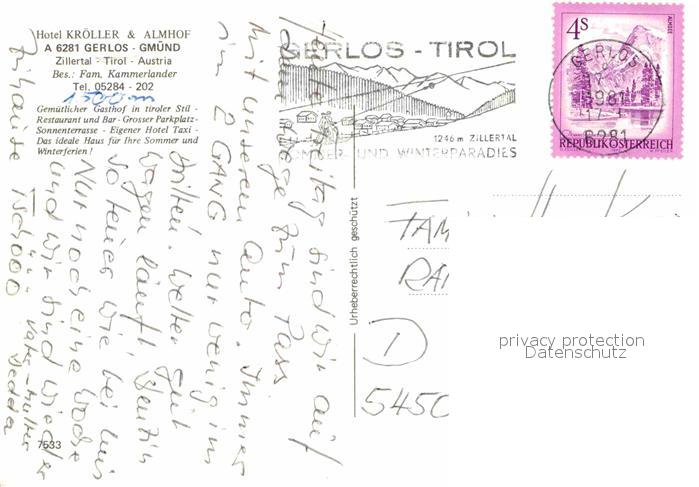 Hotel KRÖLLER & ALMHOF
A 6281 GERLOS - GMÜND
Zillertal - Tirol - Austria
Bes.: Fam. Kammerlander
Tel. 05284 - 202
1300 m
Gemütlicher Gasthof in tiroler Stil -
Restaurant und Bar - Grosser Parkplatz-
Sonnenterrasse - Eigener Hotel Taxi -
Das ideale Haus für Ihre Sommer und
Winterferien!
GERLOS - TIROL
1246 m ZILLERTAL
SOMMER- UND WINTERPARADIES
4S
ALMSEE
REPUBLIK ÖSTERREICH
GERLOS
1981
17. 3.
6281
Heute Freitag sind wir auf
Wege zum Pass
Mit unserem Auto. Immer
im 2 GANG nur wenig im
dritten. Wetter gut
Wagen läuft. Benzin
so teuer wie bei uns
Nur noch eine Woche
und wir sind wieder
zuhause
Vater - Mutter
7533
Urheberrechtlich geschützt
FAM
D
5450
privacy protection
Datenschutz